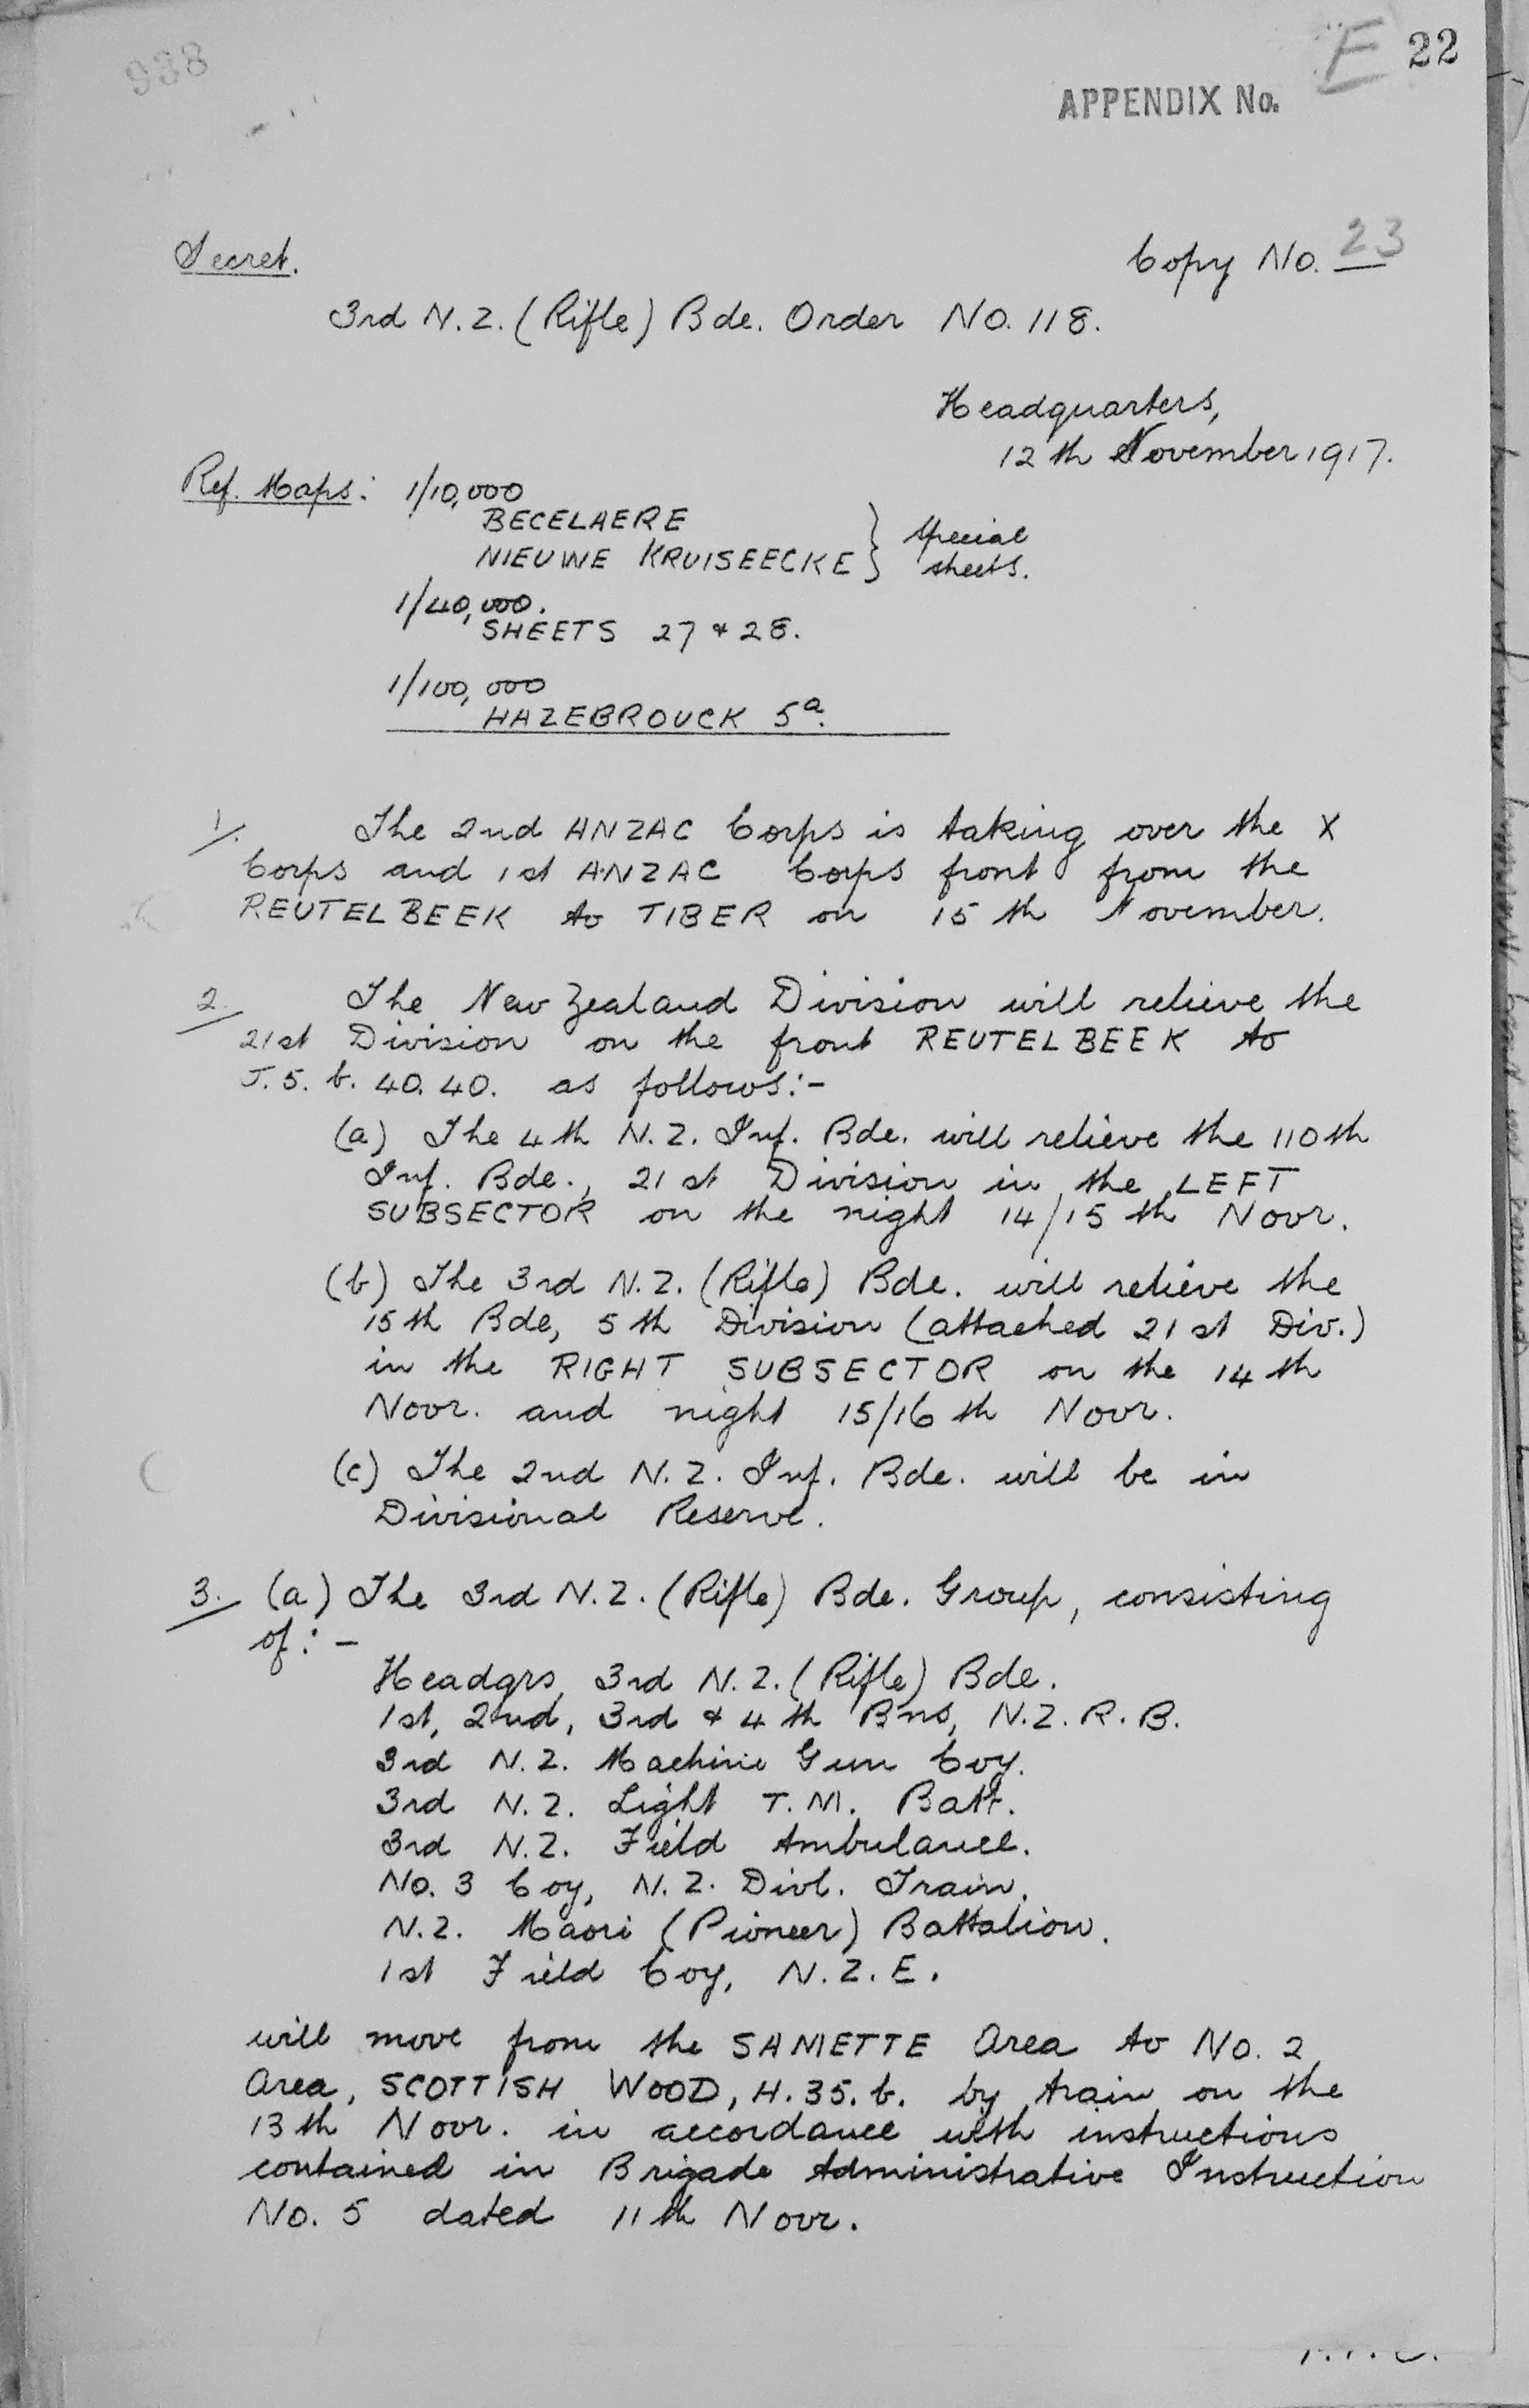 938
E 22
APPENDIX No.
Secret.
Copy No. 23
3rd N.Z. (Rifle) Bde. Order No. 118.
Headquarters,
12th November 1917.
Ref. Maps: 1/10,000
BECELAERE
NIEUWE KRUISEECKE } special sheets.
1/40,000.
SHEETS 27 & 28.
1/100,000
HAZEBROUCK 5a.
1/. The 2nd ANZAC Corps is taking over the X
Corps and 1st ANZAC Corps front from the
REUTELBEEK to TIBER on 15th November.
2/ The New Zealand Division will relieve the
21st Division on the front REUTELBEEK to
J.5.b.40.40. as follows:-
(a) The 4th N.Z. Inf. Bde. will relieve the 110th
Inf. Bde., 21st Division in the LEFT
SUBSECTOR on the night 14/15th Novr.
(b) The 3rd N.Z. (Rifle) Bde. will relieve the
15th Bde, 5th Division (attached 21st Div.)
in the RIGHT SUBSECTOR on the 14th
Novr. and night 15/16th Novr.
(c) The 2nd N.Z. Inf. Bde. will be in
Divisional Reserve.
3./ (a) The 3rd N.Z. (Rifle) Bde. Group, consisting
of:-
Headqrs, 3rd N.Z. (Rifle) Bde.
1st, 2nd, 3rd & 4th Bns, N.Z.R.B.
3rd N.Z. Machine Gun Coy.
3rd N.Z. Light T.M. Batt.
3rd N.Z. Field Ambulance.
No. 3 Coy, N.Z. Divl. Train.
N.Z. Maori (Pioneer) Battalion.
1st Field Coy, N.Z.E.
will move from the SAMETTE Area to No. 2
Area, SCOTTISH WOOD, H.35.b. by train on the
13th Novr. in accordance with instructions
contained in Brigade Administrative Instruction
No. 5 dated 11th Novr.